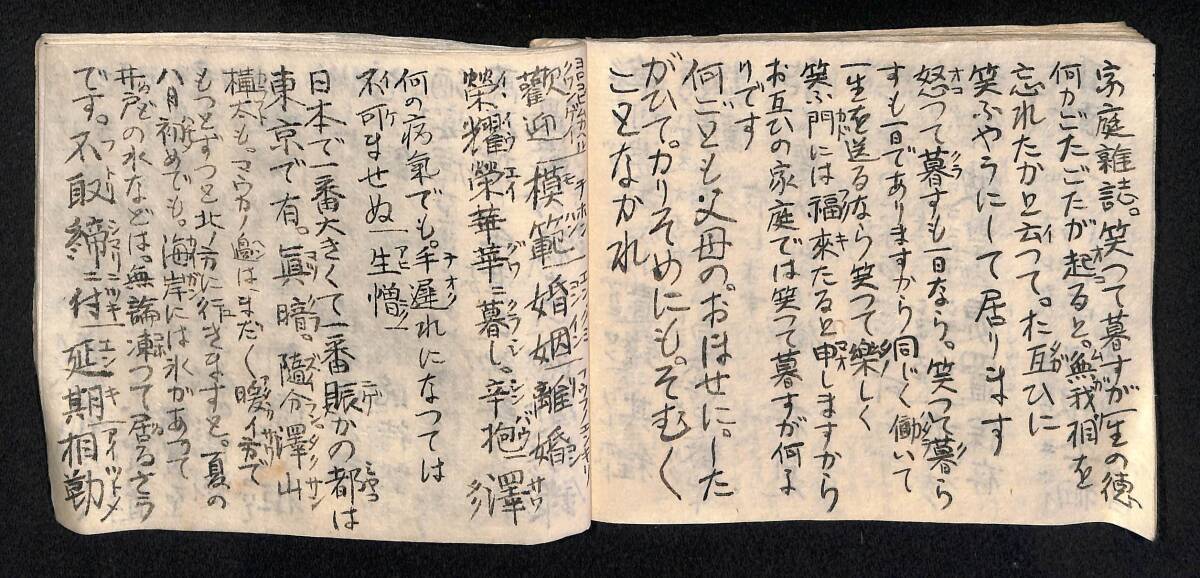 家庭雜誌。笑つて暮すが一生の徳
何かごたごたが起ると。無我相を
忘れたかと云つて。お互ひに
笑ふやうにして居ります
怒つて暮すも一日なら。笑つて暮ら
すも一日でありますから同じく働いて
一生を送るなら笑つて樂しく
笑ふ門には福來たると申しますから
お互ひの家庭では笑つて暮すが何よ
りです
何ごとも父母の。おほせに。した
がひて。かりそめにも。そむく
ことなかれ
歡迎 模範 婚姻 離婚
榮耀榮華華ニ暮し。辛抱 澤
何の病氣でも。手遅れになつては
不可ませぬ 生憎
日本で一番大きくて一番賑かの都は
東京で有。眞暗。隨分澤山
樺太も。マウカノ邊はまだ〱暖イ方で
もつとずつと北ノ方に行きますと。夏の
八月初めでも。海岸には氷があつて
井戸の水などは。無論凍つて居るさう
です。不取締ニ付 延期 相勤